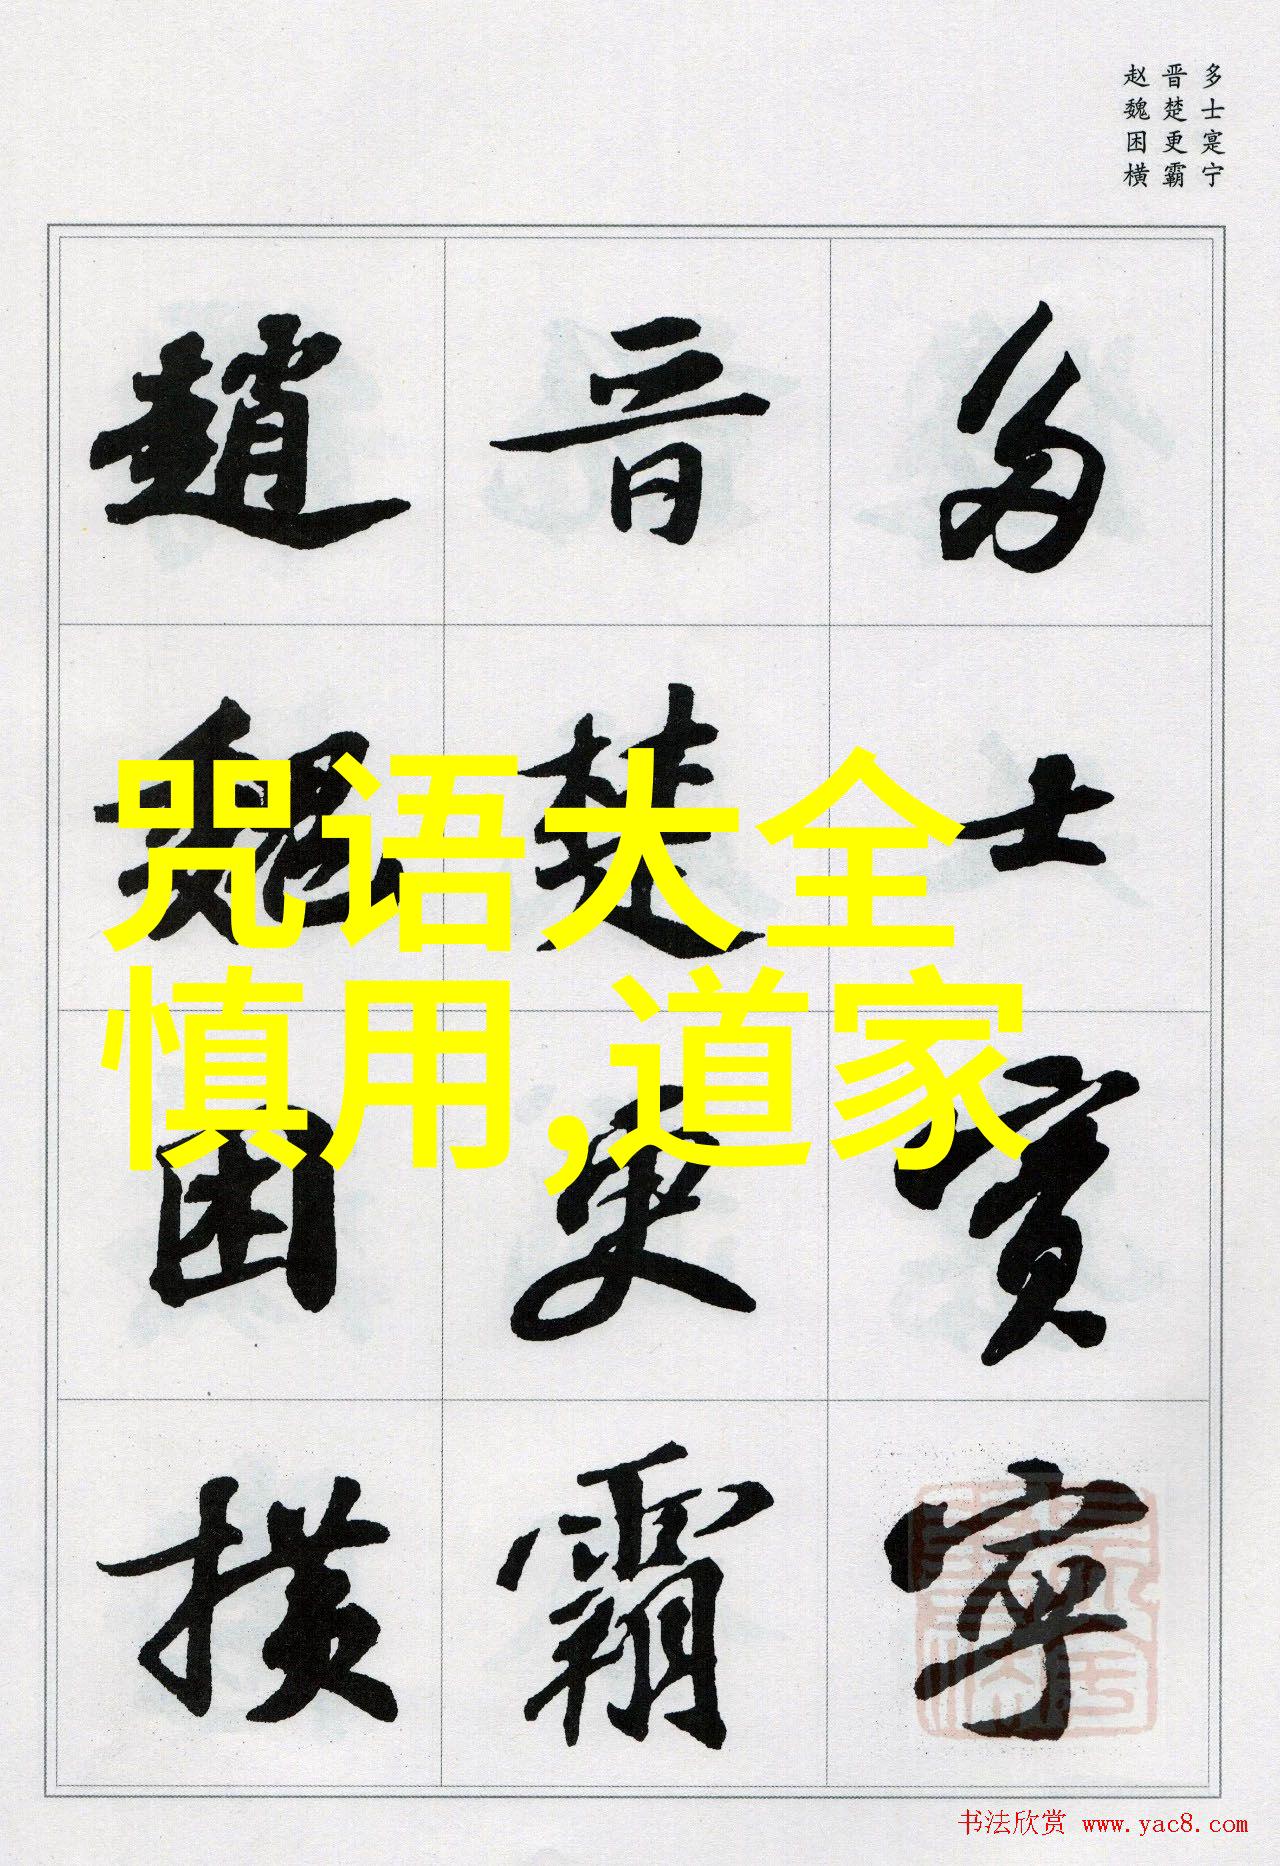 多士寔宁
晋楚更霸
赵魏困横
多士寔寧
晋楚更霸
趙魏困横
咒语大全
慎用,道家
书法欣赏 www.yac8.com